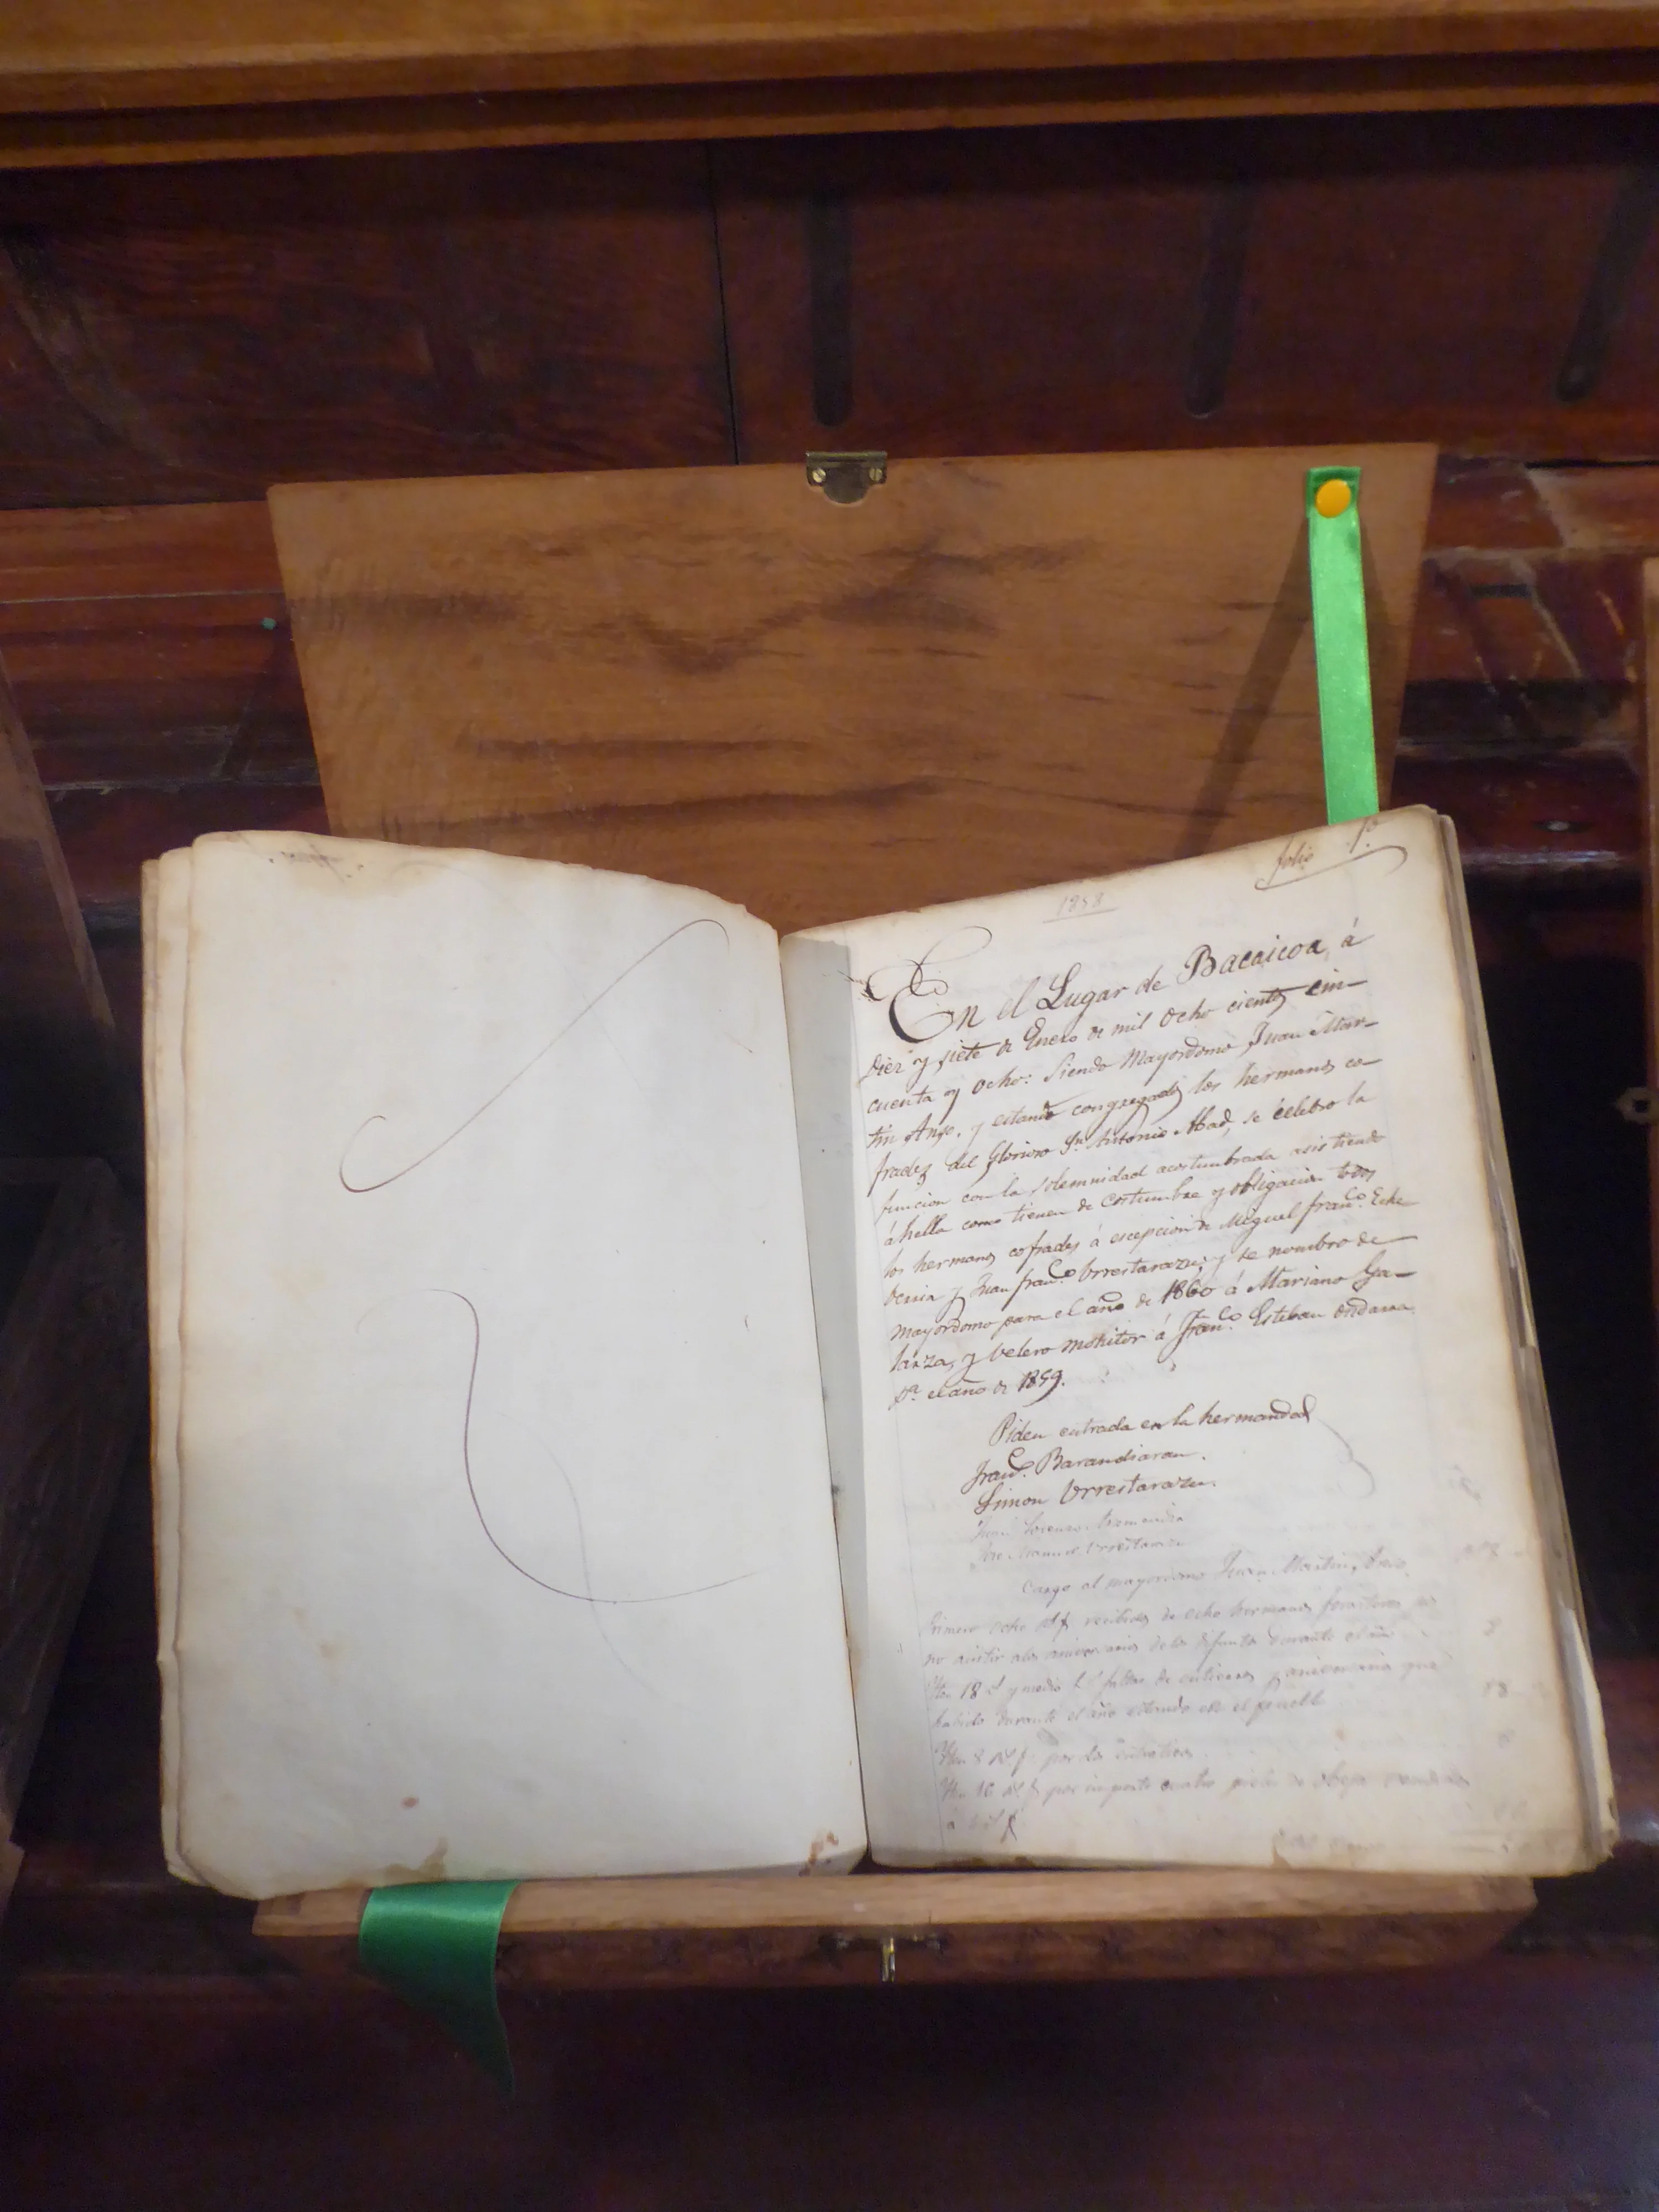 folio 1º
1858
En el Lugar de Bacaicoa, á
diez y siete de Enero de mil ocho cientos cin-
cuenta y ocho: Siendo Mayordomo Juan Mar-
tin Anso, y estando congregados los hermanos co-
frades del Glorioso Sn. Antonio Abad, se celebro la
funcion con la solemnidad acostumbrada asistiendo
áhella como tienen de costumbre y obligacion todos
los hermanos cofrades á escepcion de Miguel Franco. Eche
verria y Juan Franco. Urrestarazu; y se nombro de
mayordomo para el año de 1860 á Mariano Ga-
larza, y velero monitor á Franco. Esteban Ondarra
pa. el año de 1859.
Piden entrada en la hermandad
Franco. Barandiaran.
Simon Urrestarazu.
Juan Lorenzo
José Manuel Urrestarazu
Cargo al mayordomo Juan Martin Anso.
Primero ocho recibidos de ocho hermanos forasteros por
no asistir alos aniversarios delos difuntos durante el año
8
Yten 18 y medio faltas de entierros y aniversarios que
habido durante el año estando en el pueblo
18
Yten 8 por dos
Yten 16 por importe cuatro pieles de obeja
á